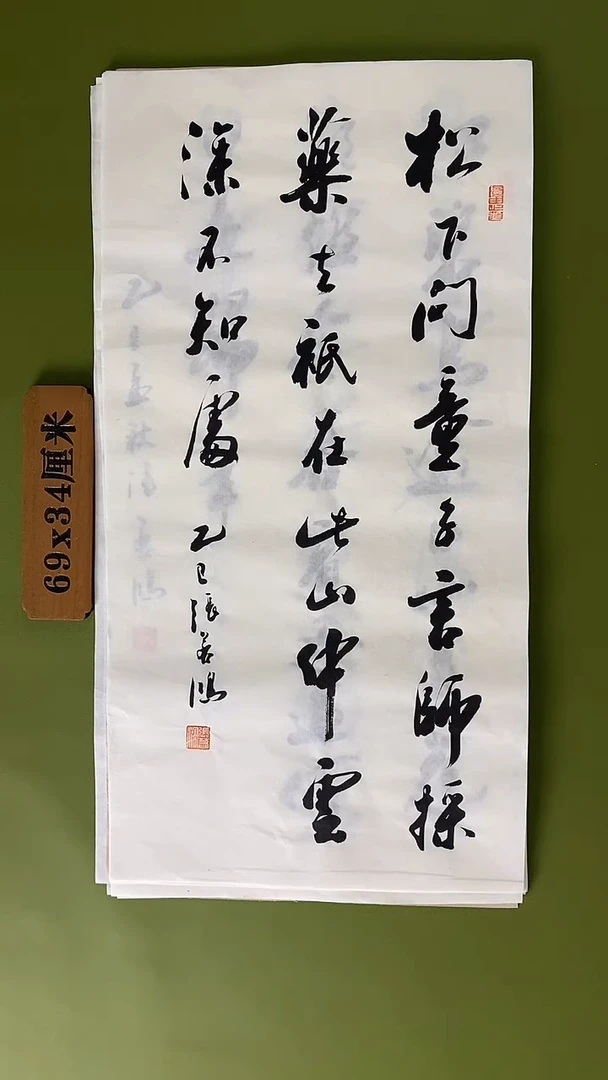 松下问童子言師採
藥去祇在此山中雲
深不知處
乙巳張若鴻
69x34厘米